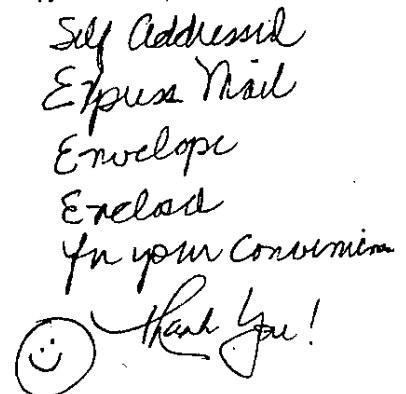 Self Addressed
Express Mail
Envelope
Enclosed
for your convenience
Thank You!